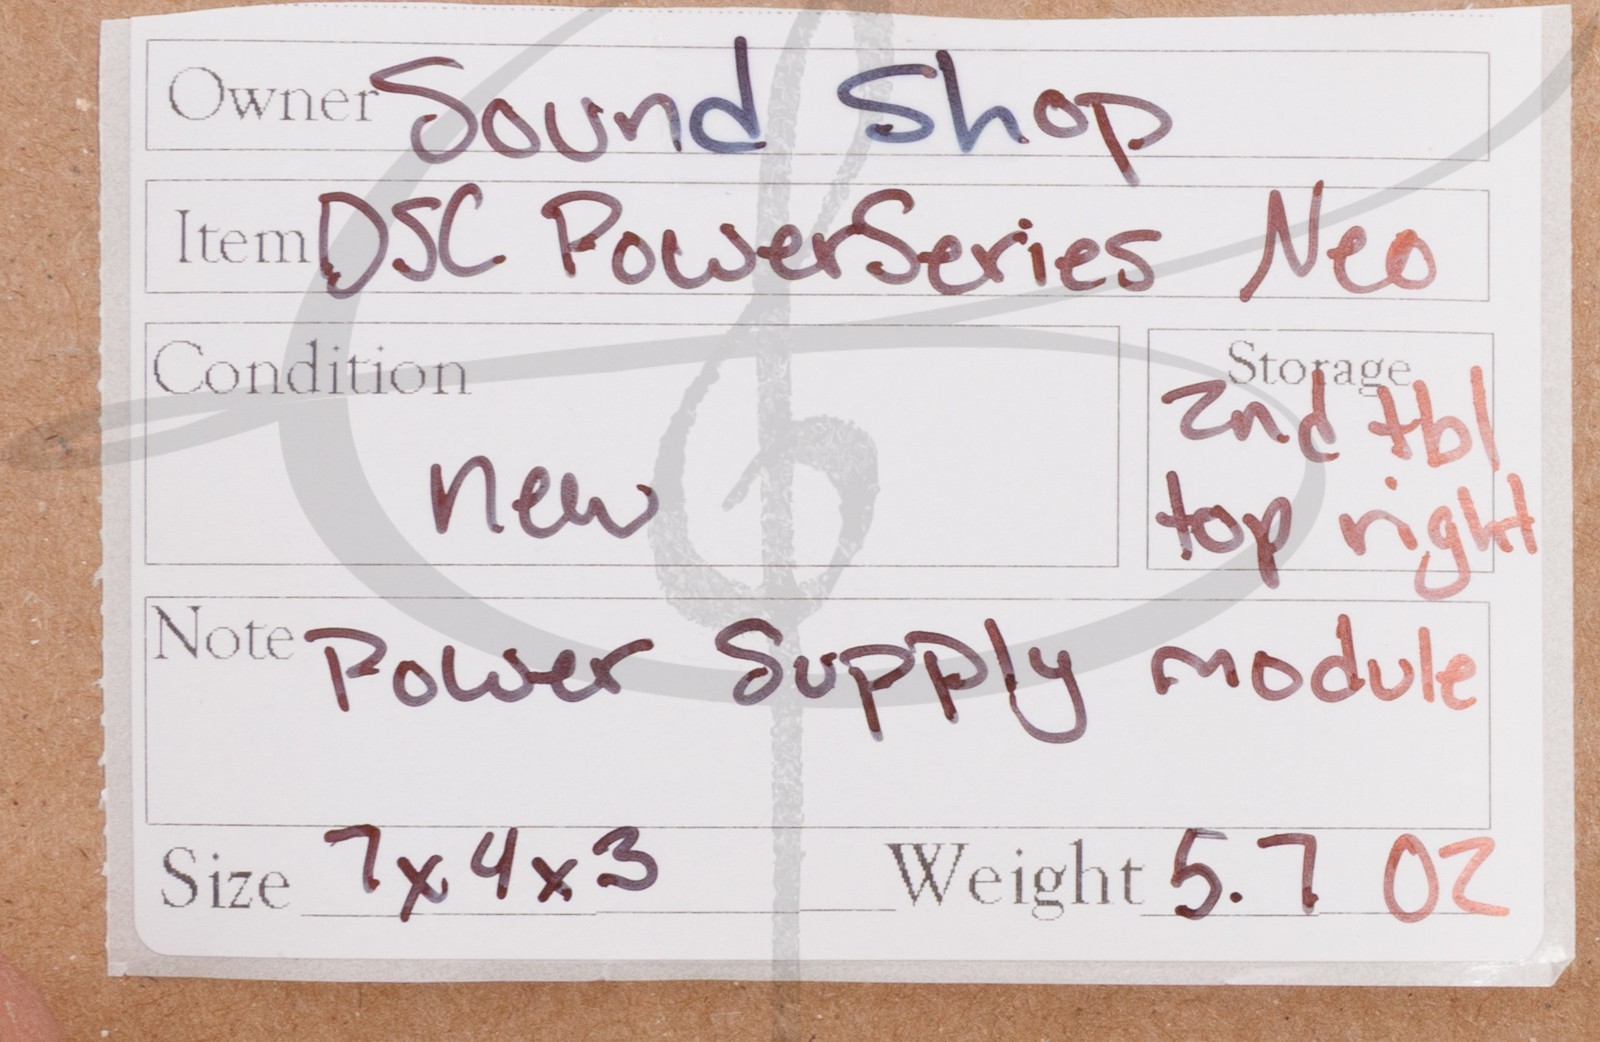 Owner Sound Shop
Item DSC PowerSeries Neo
Condition
new
Storage
2nd tbl
top right
Note Power Supply module
Size 7x4x3 Weight 5.7 OZ